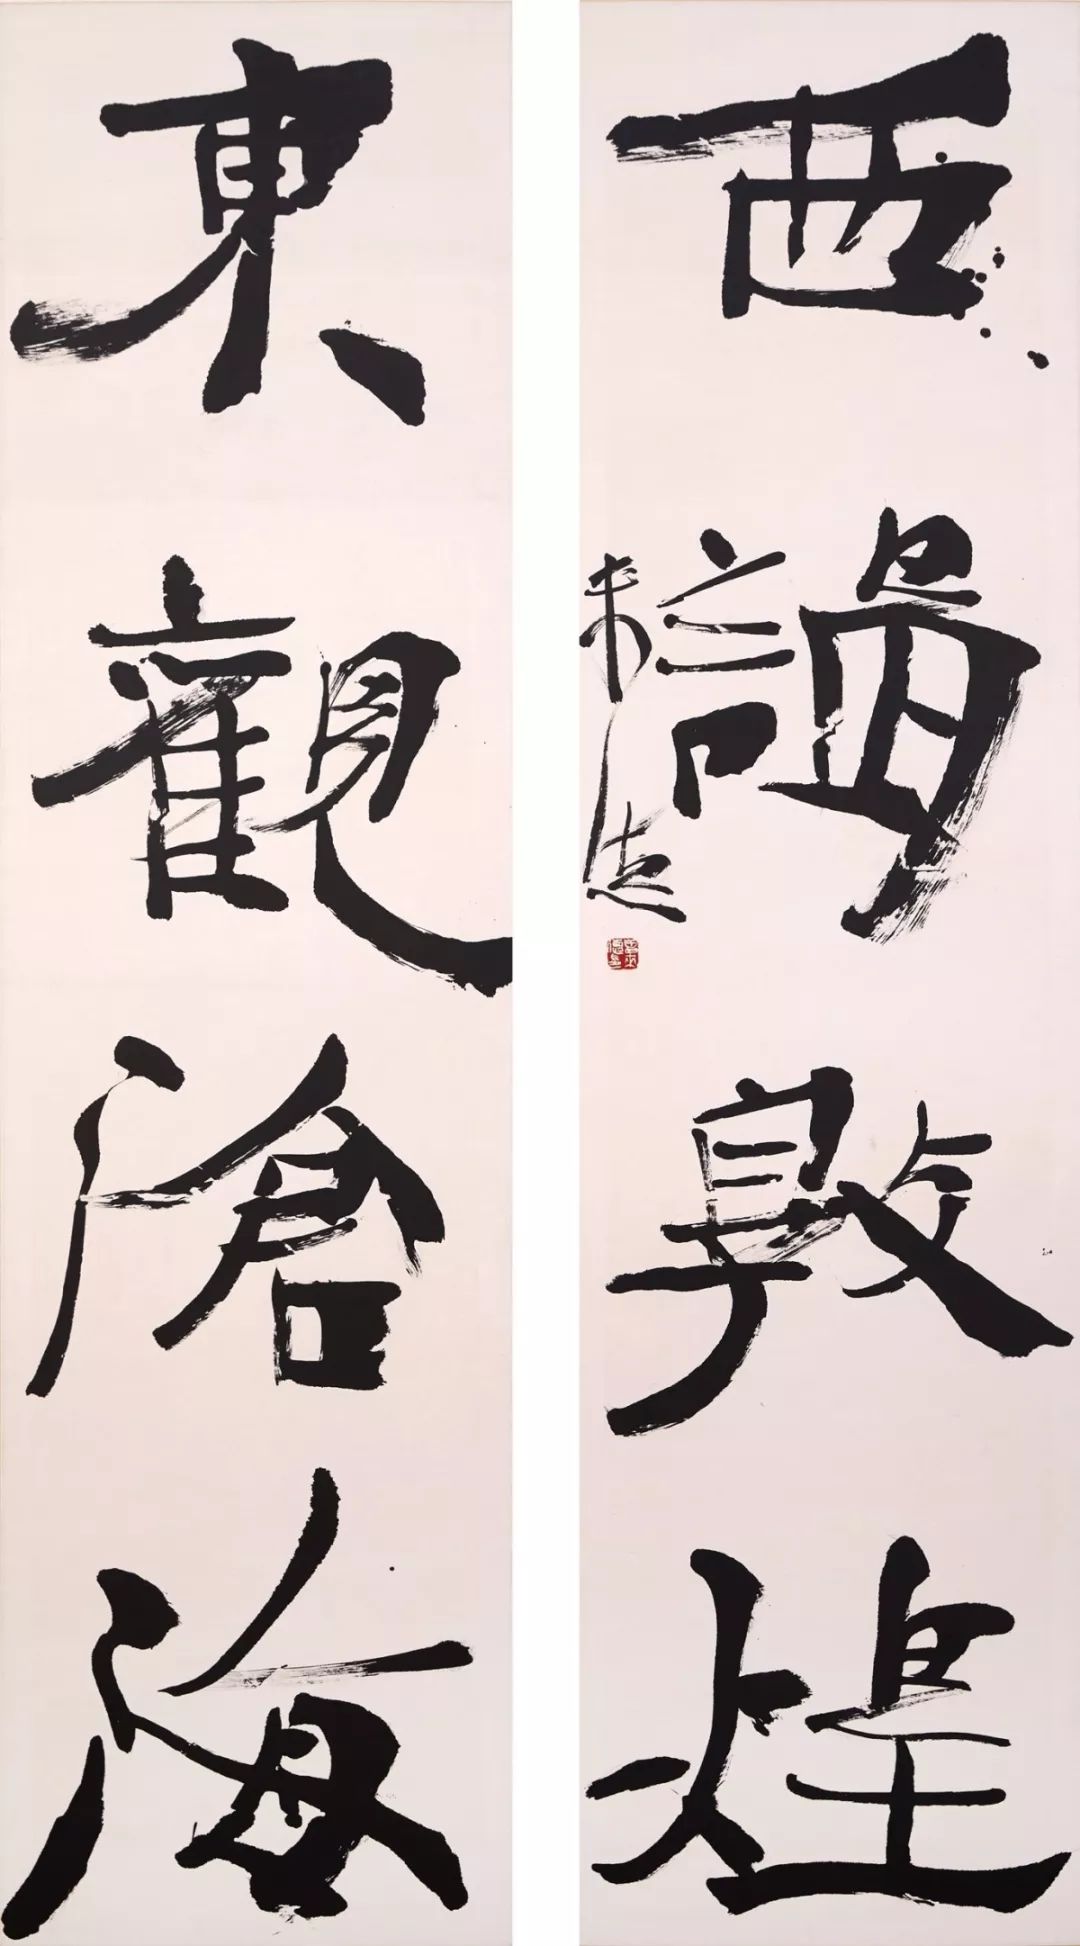 東觀滄海
西謁敦煌